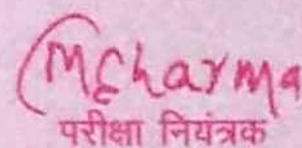 MCharma
परीक्षा नियंत्रक